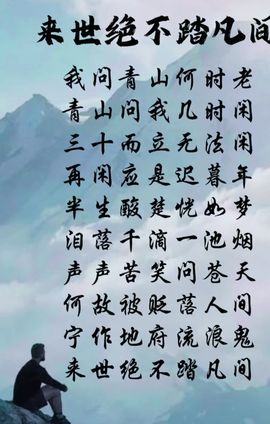 来世绝不踏凡间
我问青山何时老
青山问我几时闲
三十而立无法闲
再闲应是迟暮年
半生酸楚恍如梦
泪落千滴一池烟
声声苦笑问苍天
何故被贬落人间
宁作地府流浪鬼
来世绝不踏凡间